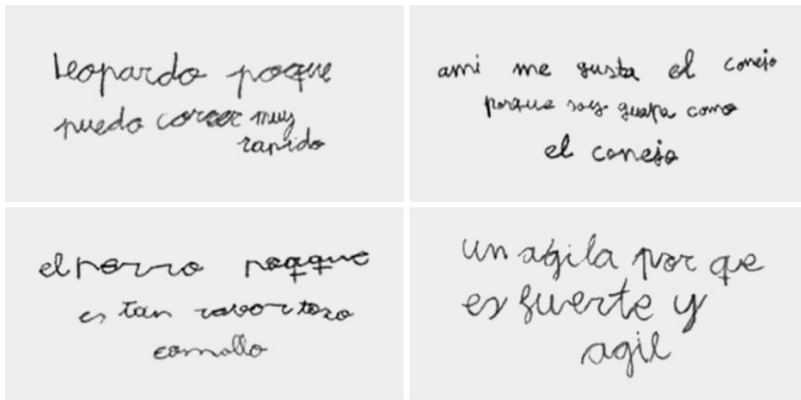 leopardo poque
puedo correr muy
rapido
ami me gusta el conejo
porque soy guapa como
el conejo
el perro
es tan
como
un agila por que
es fuerte y
agil